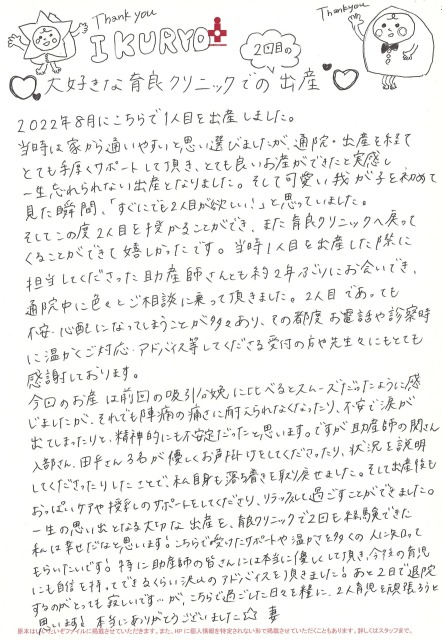 Thank you
IKURYO
Thank you
2回目の
大好きな育良クリニックでの出産
2022年8月にこちらで1人目を出産しました。
当時は家から通いやすいと思い選びましたが、通院・出産を経て
とても手厚くサポートして頂き、とても良いお産ができたと実感し
一生忘れられない出産となりました。そして可愛い我が子を初めて
見た瞬間、「すぐにでも2人目が欲しい!」と思っていました。
そしてこの度2人目を授かることができ、また育良クリニックへ戻って
くることができて嬉しかったです。当時1人目を出産した際に
担当してくださった助産師さんとも約2年ぶりにお会いでき、
通院中に色々とご相談に乗って頂きました。2人目であっても
不安・心配になってしまうことが多々あり、その都度お電話や診察時
に温かくご対応・アドバイス等してくださる受付の方や先生々にもとても
感謝しております。
今回のお産は前回の吸引分娩に比べるとスムーズだったように感
じましたが、それでも陣痛の痛さに耐えられなくなったり、不安で涙が
出てしまったりと、精神的にも不安定だったと思います。ですが助産師の関さん
入部さん、田平さん3名が優しくお声掛けをしてくださったり、状況を説明
してくださったりしたことで、私自身も落ち着きを取り戻せました。そして出産後も
おっぱいケアや授乳のサポートをしてくださり、リラックスして過ごすことができました。
一生の思い出となる大切な出産を、育良クリニックで2回も経験できた
私は幸せだなと思います。こちらで受けたサポートや温かさを多くの人に知って
もらいたいです。特に助産師の皆さんには本当に優しくして頂き、今後の育児
にも自信を持ってできるくらい沢山のアドバイスを頂きました。あと2日で退院
するのがとっても寂しいですが、こちらで過ごした日々を糧に、2人育児も頑張ろうと
思います。本当にありがとうございました☆ 妻
原本はいただいたぞファイルに掲載させていただきます。また、HPに個人情報を特定されない形で掲載させていただくこともあります。詳しくはスタッフまで。